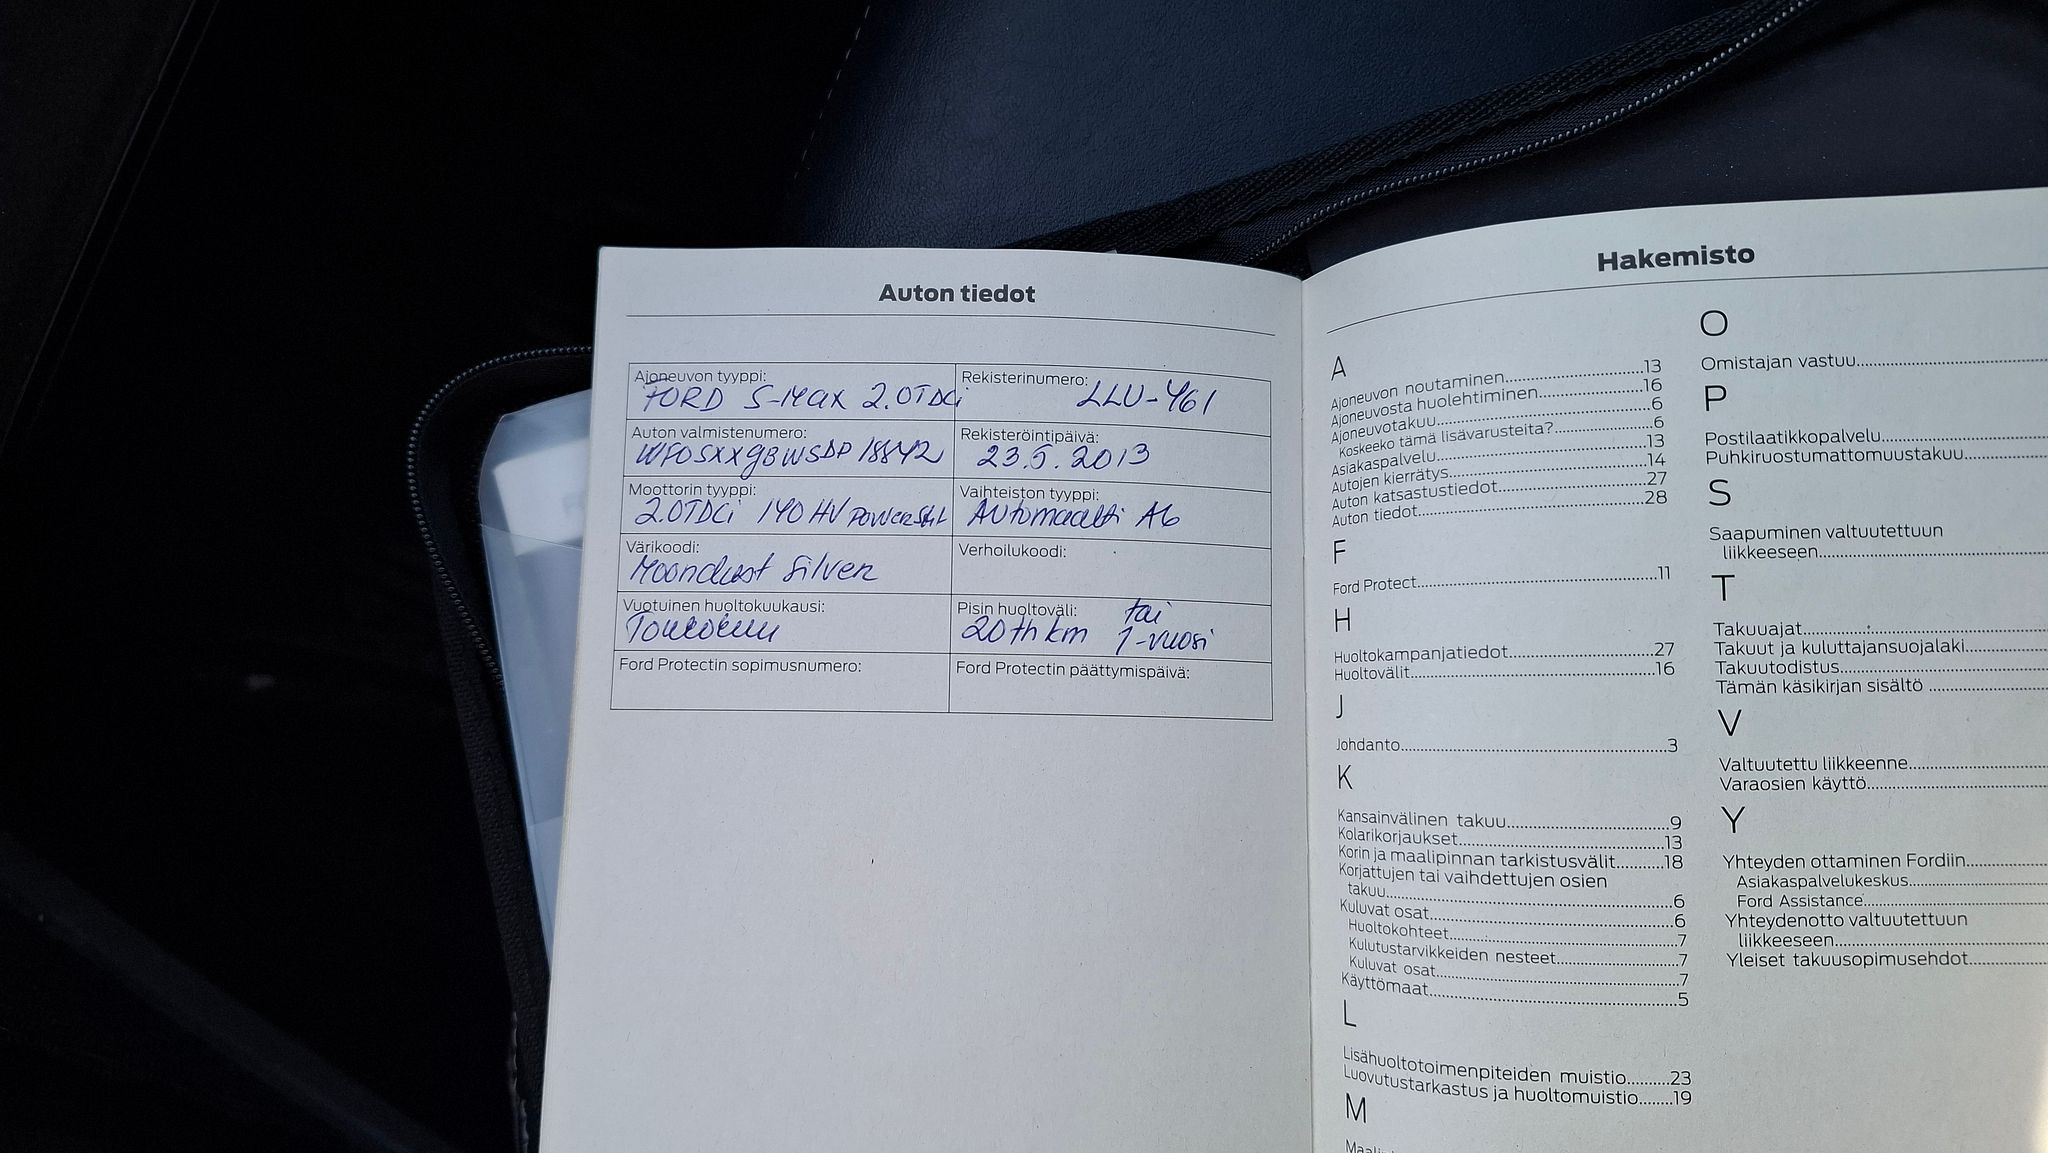 Auton tiedot
Ajoneuvon tyyppi:
FORD S-Max 2.0TDCi
Rekisterinumero:
LLU-461
Auton valmistenumero:
Rekisteröintipäivä:
23.5.2013
Moottorin tyyppi:
2.0TDCi 140 HV
Vaihteiston tyyppi:
Automaatti A6
Värikoodi:
Moondust Silver
Verhoilukoodi:
Vuotuinen huoltokuukausi:
Toukokuu
Pisin huoltoväli:
20th km tai
1-vuosi
Ford Protectin sopimusnumero:
Ford Protectin päättymispäivä:
Hakemisto
A
Ajoneuvon noutaminen 13
Ajoneuvosta huolehtiminen 16
Ajoneuvotakuu 6
Koskeeko tämä lisävarusteita? 6
Asiakaspalvelu 13
Autojen kierrätys 14
Auton katsastustiedot 27
Auton tiedot 28
F
Ford Protect 11
H
Huoltokampanjatiedot 27
Huoltovälit 16
J
Johdanto 3
K
Kansainvälinen takuu 9
Kolarikorjaukset 13
Korin ja maalipinnan tarkistusvälit 18
Korjattujen tai vaihdettujen osien
takuu 6
Kuluvat osat 6
Huoltokohteet 7
Kulutustarvikkeiden nesteet 7
Kuluvat osat 7
Käyttömaat 5
L
Lisähuoltotoimenpiteiden muistio 23
Luovutustarkastus ja huoltomuistio 19
M
O
Omistajan vastuu
P
Postilaatikkopalvelu
Puhkiruostumattomuustakuu
S
Saapuminen valtuutettuun
liikkeeseen
T
Takuuajat
Takuut ja kuluttajansuojalaki
Takuutodistus
Tämän käsikirjan sisältö
V
Valtuutettu liikkeenne
Varaosien käyttö
Y
Yhteyden ottaminen Fordiin
Asiakaspalvelukeskus
Ford Assistance
Yhteydenotto valtuutettuun
liikkeeseen
Yleiset takuusopimusehdot